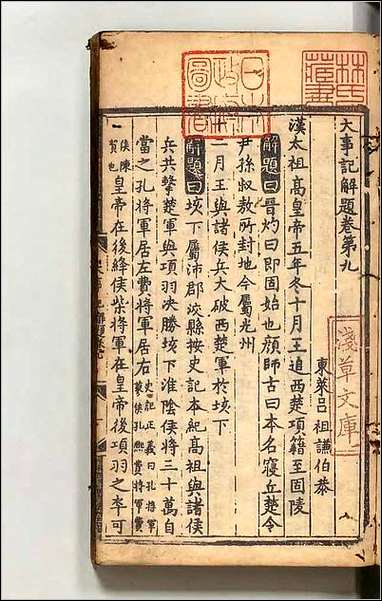 大事記解題卷第九
東萊呂 祖謙伯恭
漢太祖高皇帝五年冬十月王追西楚項籍至固陵
解題曰晉灼曰即固始也顔師古曰本名寢丘楚令
尹孫叔敖所封地今屬光州
十一月王與諸侯兵大破西楚軍於垓下
解題曰垓下屬沛郡洨縣按史記本紀高祖與諸侯
兵共擊楚軍與項羽決勝垓下淮陰侯將三十萬自
當之孔將軍居左費將軍居右史記正義曰孔將軍蓼侯孔熙費將軍費
侯陳賀也皇帝在後絳侯柴將軍在皇帝後項羽之卒可
林氏藏書
日本政府圖書
淺草文庫